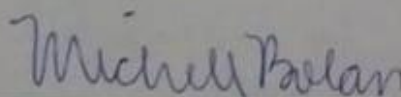 Michell Bolan